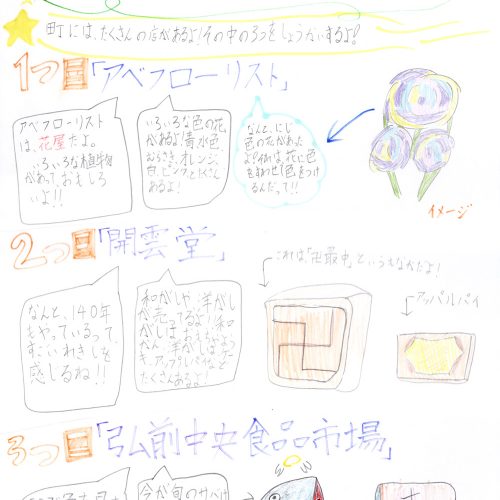 町には、たくさんの店があるよ!その中の3つをしょうかいするよ!
1つ目「アベフローリスト」
アベフローリスト
は、花屋だよ。
いろいろな植物
があって、おもしろ
いよ!!
いろいろな色の花
があるよ!青水色
むらさき、オレンジ
色、ピンクとたくさん
あるよ!
なんと、にじ
色の花があった
よ!
イメージ
2つ目「開雲堂」
なんと、140年
もやっているって
すごいれきしを
感じるね!!
和がしや、洋がし
が売ってるよ!和
がしは、
たくさんあるよ!
これは「卍最中」というもなかだよ!
アップルパイ
3つ目「弘前中央食品市場」
今が旬のサバけ